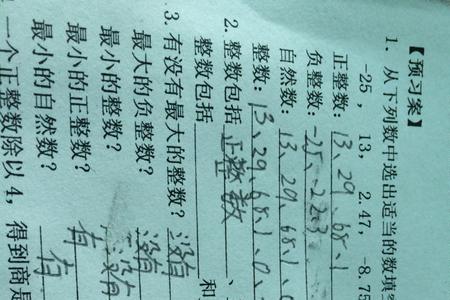 【预习案】
1. 从下列数中选出适当的数填
-25， 13， 2.47， -8.75
正整数：13、29、68、1
负整数：-25、-223
自然数：13、29、68、1、
整数：13、29、68、1、0、
2. 整数包括 正整数 、
整数包括 和
3. 有没有最大的整数？ 没有
最大的负整数？ 没有
最小的整数？ 没有
最小的正整数？ 有
最小的自然数？ 有
一个正整数除以 4，得到商是